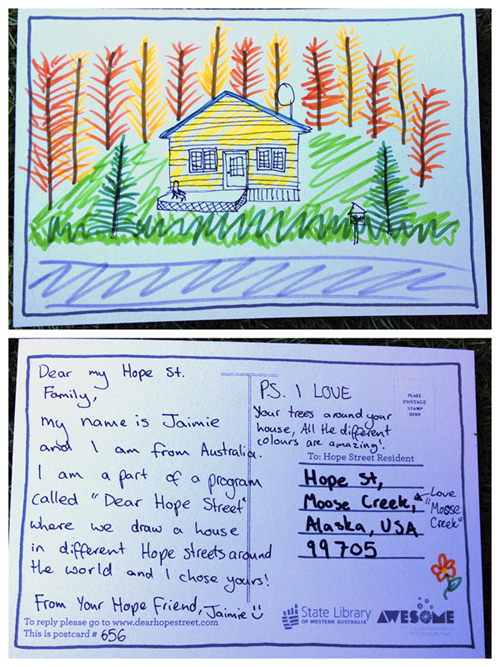 Dear my Hope St.
Family,
my name is Jaimie
and I am from Australia.
I am a part of a program
called "Dear Hope Street"
where we draw a house
in different Hope streets around
the world and I chose yours!
From Your Hope Friend, Jaimie
To reply please go to www.dearhopestreet.com
This is postcard # 656
P.S. I LOVE
Your trees around your
house, All the different
colours are amazing!
PLACE
POSTAGE
STAMP
HERE
To: Hope Street Resident
Hope St,
Moose Creek,
Alaska, USA
99705
Love
"Moose
Creek"
State Library
OF WESTERN AUSTRALIA
AWESOME